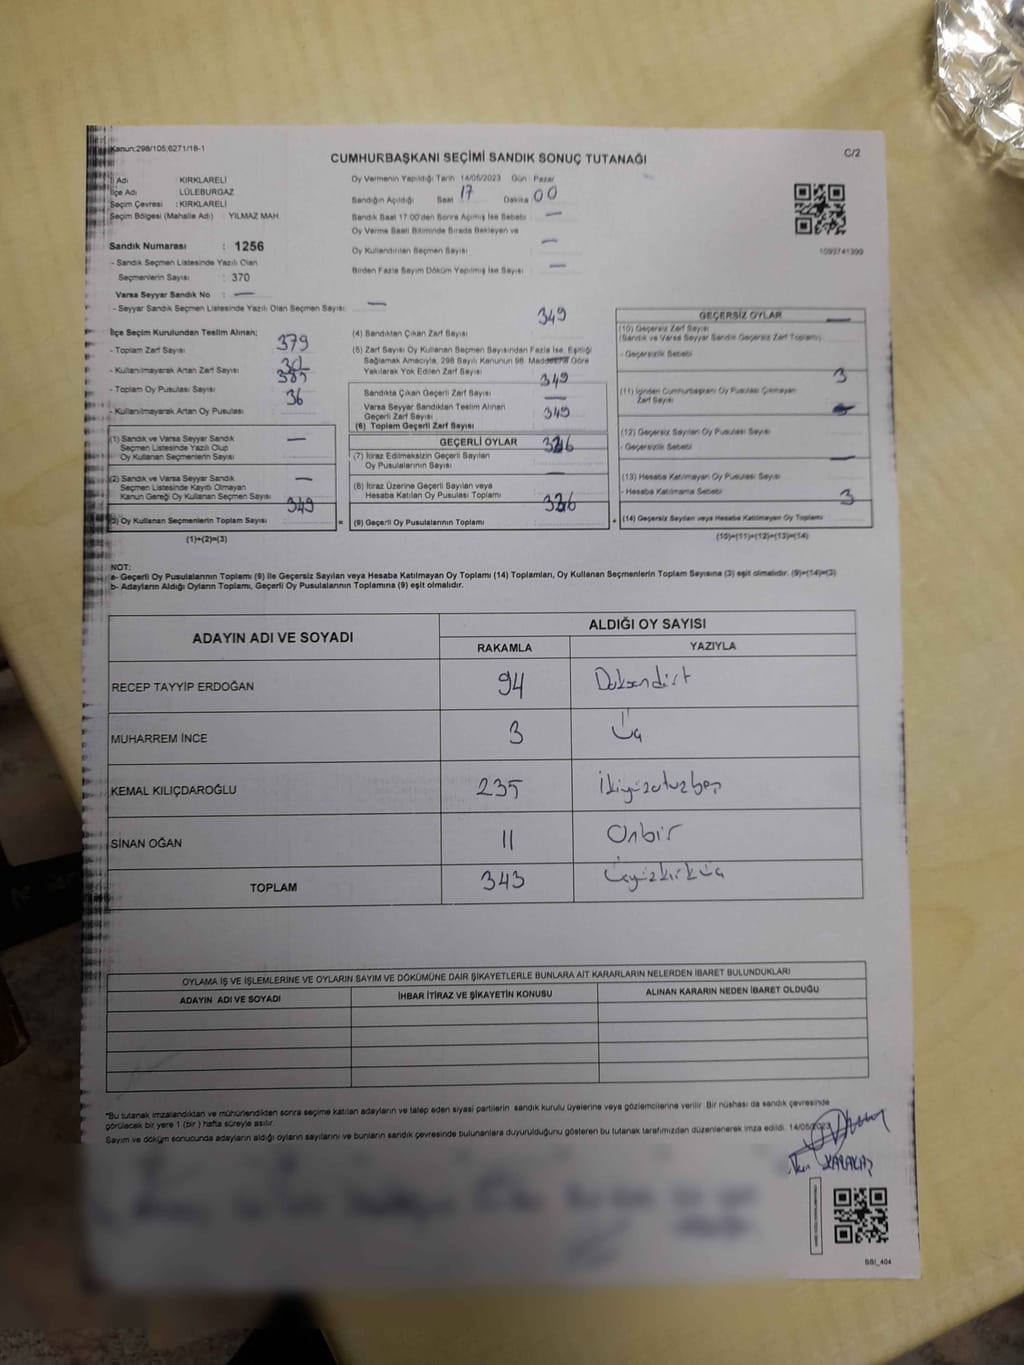 Kanun:298/105;6271/18-1
CUMHURBAŞKANI SEÇİMİ SANDIK SONUÇ TUTANAĞI
C/2
İl Adı : KIRKLARELİ
İlçe Adı : LÜLEBURGAZ
Seçim Çevresi : KIRKLARELİ
Seçim Bölgesi (Mahalle Adı) : YILMAZ MAH.
Sandık Numarası : 1256
- Sandık Seçmen Listesinde Yazılı Olan
Seçmenlerin Sayısı : 370
Varsa Seyyar Sandık No : —
- Seyyar Sandık Seçmen Listesinde Yazılı Olan Seçmen Sayısı: —
Oy Vermenin Yapıldığı Tarih :14/05/2023 Gün : Pazar
Sandığın Açıldığı Saat 17 Dakika 00
Sandık Saat 17:00'den Sonra Açılmış İse Sebebi —
Oy Verme Saati Bitiminde Sırada Bekleyen ve
Oy Kullandırılan Seçmen Sayısı —
Birden Fazla Sayım Döküm Yapılmış İse Sayısı —
1093741399
İlçe Seçim Kurulundan Teslim Alınan;
- Toplam Zarf Sayısı 379
- Kullanılmayarak Artan Zarf Sayısı 30
- Toplam Oy Pusulası Sayısı
- Kullanılmayarak Artan Oy Pusulası 36
(1) Sandık ve Varsa Seyyar Sandık —
Seçmen Listesinde Yazılı Olup
Oy Kullanan Seçmenlerin Sayısı
(2) Sandık ve Varsa Seyyar Sandık —
Seçmen Listesinde Kayıtlı Olmayan
Kanun Gereği Oy Kullanan Seçmen Sayısı
(3) Oy Kullanan Seçmenlerin Toplam Sayısı 349
(1)+(2)=(3)
(4) Sandıktan Çıkan Zarf Sayısı 349
(5) Zarf Sayısı Oy Kullanan Seçmen Sayısından Fazla İse, Eşitliği
Sağlamak Amacıyla, 298 Sayılı Kanunun 98. Maddesine Göre
Yakılarak Yok Edilen Zarf Sayısı
Sandıkta Çıkan Geçerli Zarf Sayısı 349
Varsa Seyyar Sandıktan Teslim Alınan —
Geçerli Zarf Sayısı
(6) Toplam Geçerli Zarf Sayısı 349
GEÇERLİ OYLAR
(7) İtiraz Edilmeksizin Geçerli Sayılan
Oy Pusulalarının Sayısı
(8) İtiraz Üzerine Geçerli Sayılan veya —
Hesaba Katılan Oy Pusulası Toplamı
(9) Geçerli Oy Pusulalarının Toplamı
GEÇERSİZ OYLAR
(10) Geçersiz Zarf Sayısı —
(Sandık ve Varsa Seyyar Sandık Geçersiz Zarf Toplamı)
- Geçersizlik Sebebi
(11) İçinden Cumhurbaşkanı Oy Pusulası Çıkmayan 3
Zarf Sayısı
(12) Geçersiz Sayılan Oy Pusulası Sayısı
- Geçersizlik Sebebi
(13) Hesaba Katılmayan Oy Pusulası Sayısı —
- Hesaba Katılmama Sebebi
(14) Geçersiz Sayılan veya Hesaba Katılmayan Oy Toplamı 3
(10)+(11)+(12)+(13)=(14)
NOT:
a- Geçerli Oy Pusulalarının Toplamı (9) ile Geçersiz Sayılan veya Hesaba Katılmayan Oy Toplamı (14) Toplamları, Oy Kullanan Seçmenlerin Toplam Sayısına (3) eşit olmalıdır. (9)+(14)=(3)
b- Adayların Aldığı Oyların Toplamı, Geçerli Oy Pusulalarının Toplamına (9) eşit olmalıdır.
ADAYIN ADI VE SOYADI
ALDIĞI OY SAYISI
RAKAMLA YAZIYLA
RECEP TAYYİP ERDOĞAN 94 Doksendört
MUHARREM İNCE 3 Üç
KEMAL KILIÇDAROĞLU 235 İkiyüzotuzbeş
SİNAN OĞAN 11 Onbir
TOPLAM 343 Üçyüzkırküç
OYLAMA İŞ VE İŞLEMLERİNE VE OYLARIN SAYIM VE DÖKÜMÜNE DAİR ŞİKAYETLERLE BUNLARA AİT KARARLARIN NELERDEN İBARET BULUNDUKLARI
ADAYIN ADI VE SOYADI İHBAR İTİRAZ VE ŞİKAYETİN KONUSU ALINAN KARARIN NEDEN İBARET OLDUĞU
"Bu tutanak imzalandıktan ve mühürlendikten sonra seçime katılan adayların ve talep eden siyasi partilerin sandık kurulu üyelerine veya gözlemcilerine verilir. Bir nüshası da sandık çevresinde
görülecek bir yere 1 (bir) hafta süreyle asılır.
Sayım ve döküm sonucunda adayların aldığı oyların sayılarını ve bunların sandık çevresinde bulunanlara duyurulduğunu gösteren bu tutanak tarafımızdan düzenlenerek imza edildi. 14/05/2023
KARAKAŞ
SSI_404